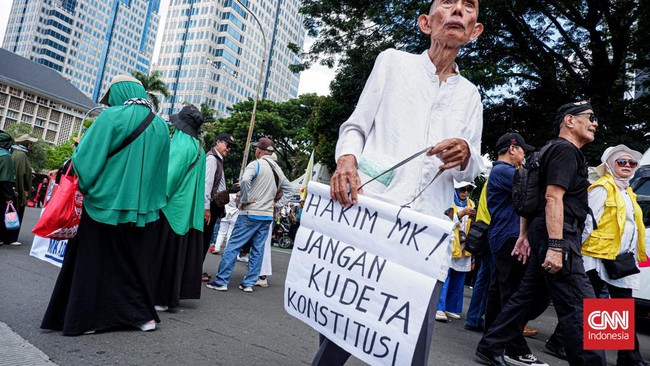 HAKIM MK!
JANGAN
KUDETA
KONSTITUSI
CNN
Indonesia